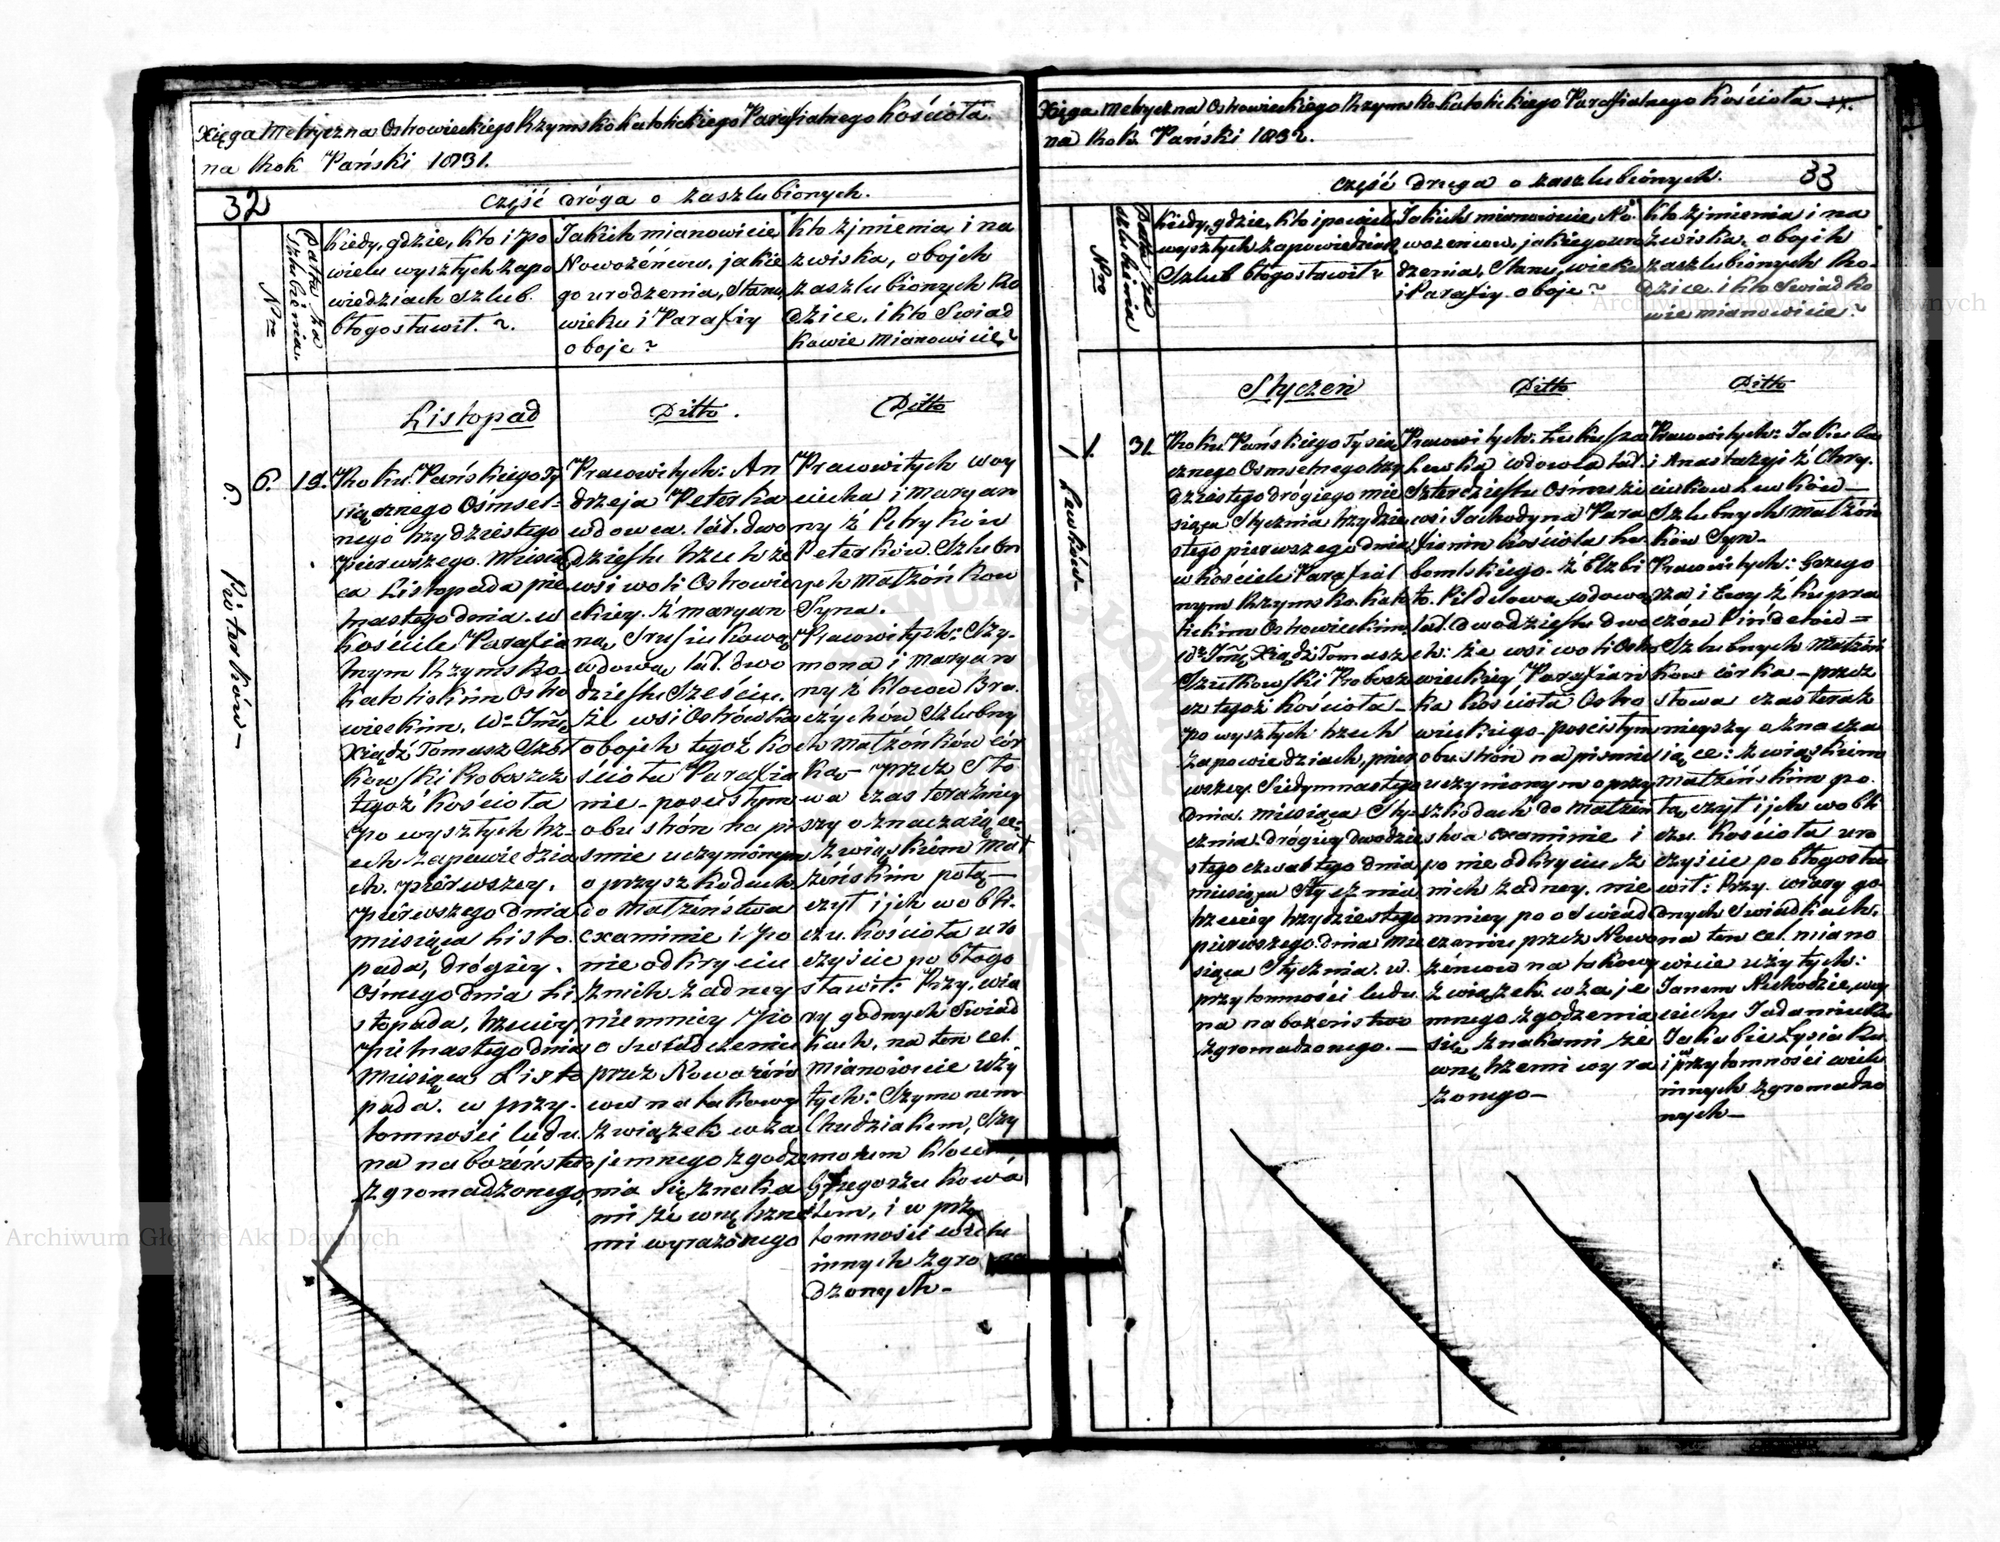 Xięga Metryczna Ostrowieckiego Rzymsko Katolickiego Parafialnego Kościoła
na Rok Pański 1831.
32
Część dróga o zaszlubionych.
Nro
Datta za
szlubienia.
Kiedy, gdzie, kto i po
wielu wyszłych zapo
wiedziach szlub.
błogosławił. ?.
Jakich mianowicie
Nowożeńców, jakie
go urodzenia, Stanu,
wieku i Parafiy
oboje ?
Kto z jmienia, i na
zwiska, obojch
zaszlubionych Ro
dzice, i kto Swiad
kowie mianowicie ?
Listopad
Ditto.
Ditto
6.
6.
15.
Roku Pańskiego Ty
siącznego Ośmset-
nego trzydziestego
pierwszego. Miesią
ca Listopada pie
tnastego dnia. w
Kościele Parafia
lnym Rzymsko.
Katolickim Ostro
wieckim, W: Jmć
Xiądz Tomasz Szót
kowski Proboszcz
tegoż Kościoła
po wyszłych trz-
ech zapowiedzia
ch. pierwszey.
pierwszego dnia
miesiąca Listo.
pada, drógiey.
Ośmego dnia Li
stopada, trzeciey
pietnastego dnia
miesiąca Listo
pada. w przy.
tomności ludu.
na nabożeństwo
zgromadzonego.
Pracowitych: An
drzeja Peterka
wdowca. lat. dwo
dziestu trzech ze
wsi woli Ostrowie
ckiey. z maryan
ną,
wdową, lat. dwo
dziestu Sześciu.
ze wsi Ostrówka
obojch tegoż ko
ścioła Parafia
nie - po scisłym
obu strón na pi
smie uczynionym
o przyszkodach
do Małżeństwa
examinie i po
nie odkryciu
z nich żadney
niemniey po
o swiadczeniu
przez Nowożéń
ców na takowy
związek wza
jemnego zgodze
nia się znaka
mi zewnętrzne
mi wyrażonego
Pracowitych woy
ciecha i Maryan
ny z Petryków
Peterków. Szlubn
ych Małżónków
Syna.
Pracowitych: Szy-
mona i Maryan
ny z
Szlubny
ch Małżónków cór
ka - przez Sło
wa czas teraźniey
szy oznaczaiące;
związkiem Mał
żeńskim połą-
czył i jch wobli-
czu. Kościoła uro
czyście po błogo
sławił: Przy, wia
ry godnych Swiad
kach, na ten cel
mianowicie uży
tych: Szymonem
Chudziakiem, Szy
monem
Grzegorzu Kowa
lem, i w przy
tomności wielu
innych zgroma
dzonych-
Xięga Metryczna Ostrowieckiego Rzymsko Katolickiego Parafialnego Kościoła
na Rok Pański 1832.
Część druga o zaszlubionych.
33
Nro
Kto z jmienia i na
zwiska, obojch
zaszlubionych Ro-
dzice, i kto Swiadko
wie mianowicie ?
Styczeń
Ditto
Ditto
1.
31.
Lewków-
Roku Pańskiego Tysią
cznego Ośmsetnego trzy
dziestego drógiego mie
siąca Stycznia trzydzie
stego pierwszego dnia
w Kościele Parafial
nym Rzymsko. Kato
lickim Ostrowieckim,
W: Jmć Xiądz Tomasz
Szutkowski Probosz
cz tegoż Kościoła-
po wyszłych trzech
zapowiedziach, pier
wszey. Siedymnastego
dnia. miesiąca Sty-
cznia. drógiey dwodzie
stego czwartego dnia
miesiąca Stycznia
trzeciey trzydziestego
pierwszego dnia. mie
siąca Stycznia. w.
przytomności ludu
na nabożeństwo
zgromadzonego.-
Pracowitych: Łukasza
Lewka, wdowca lat.
Szterdziestu Ośmu ze
wsi Jachodyna Para
fianin Kościoła
z Elzbi
wdową
lat. dwodziestu dwo
ch: ze wsi woli Ostro
wieckiey Parafian
ka Kościoła Ostro
wieckiego - po scisłym
obu strón na pismie
uczynionym o przy
szkodach do Małżeń
stwa examinie i
po nie odkryciu z
nich żadney. nie
mniey po o Swiad
czeniu przez Nowo
żéńców na takowy
związek wzaje
mnego zgodzenia
się znakami ze
wnętrzemi wyra
żonego-
Pracowitych: Jakuba
i Anastazyi z Chry.
Lewków-
Szlubnych Małżón
ków Syn-
Pracowitych: Grzego
rza i Ewy z Kupra
czów
Szlubnych Małżón
ków córka - przez
słowa czas teraź
nieyszy oznacza
iące: związkiem
Małżeńskim po.
łączył i jch wobli
czu. Kościoła uro
czyście pobłogosła
wił: Przy. wiary go-
dnych Swiadkach,
na ten cel miano
wicie użytych:
Jakubie Łysiaku
i w przytomności wielu
innych zgromadzo
nych-
Archiwum Główne Akt Dawnych
Archiwum Główne Akt Dawnych